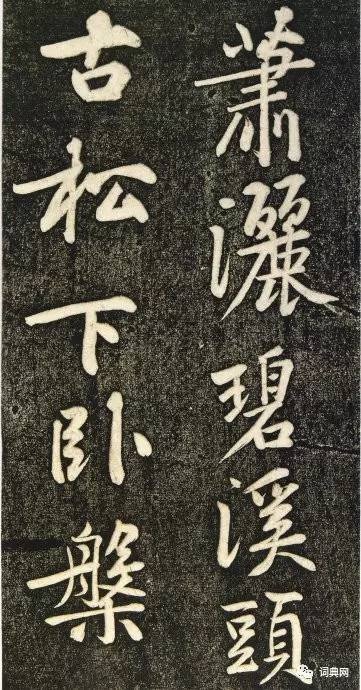 蕭灑碧溪頭
古松下卧槃
词典网